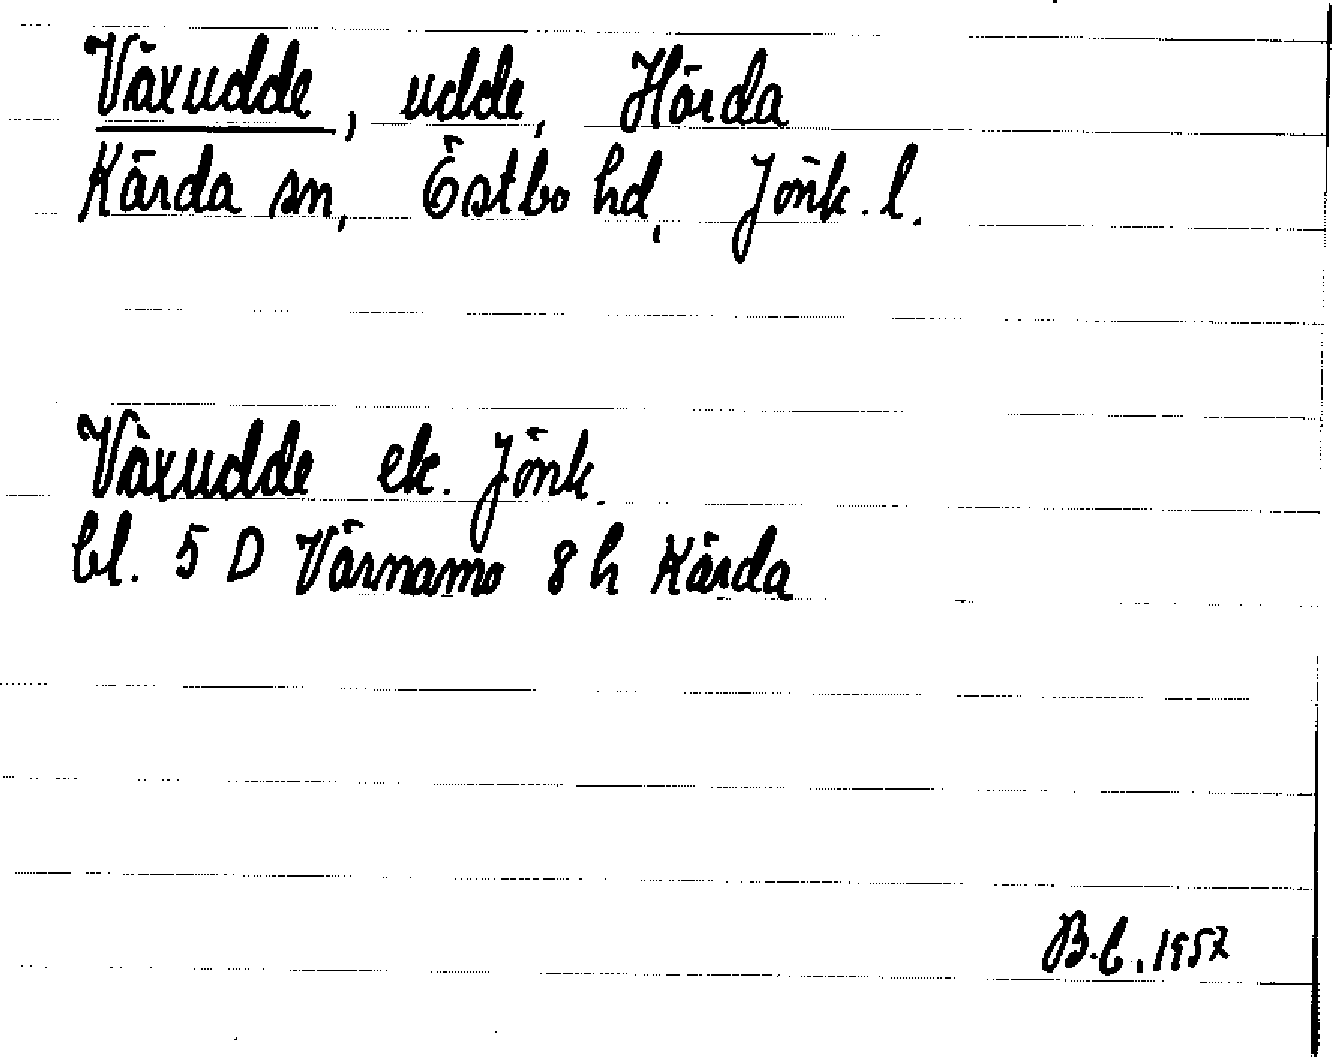 Växudde, udde, Hörda
Kärda sn, Östbo hd, Jönk. l.
Växudde ek. Jönk.
bl. 5 D Värnamo 8 h Kärda
B.E. 1952